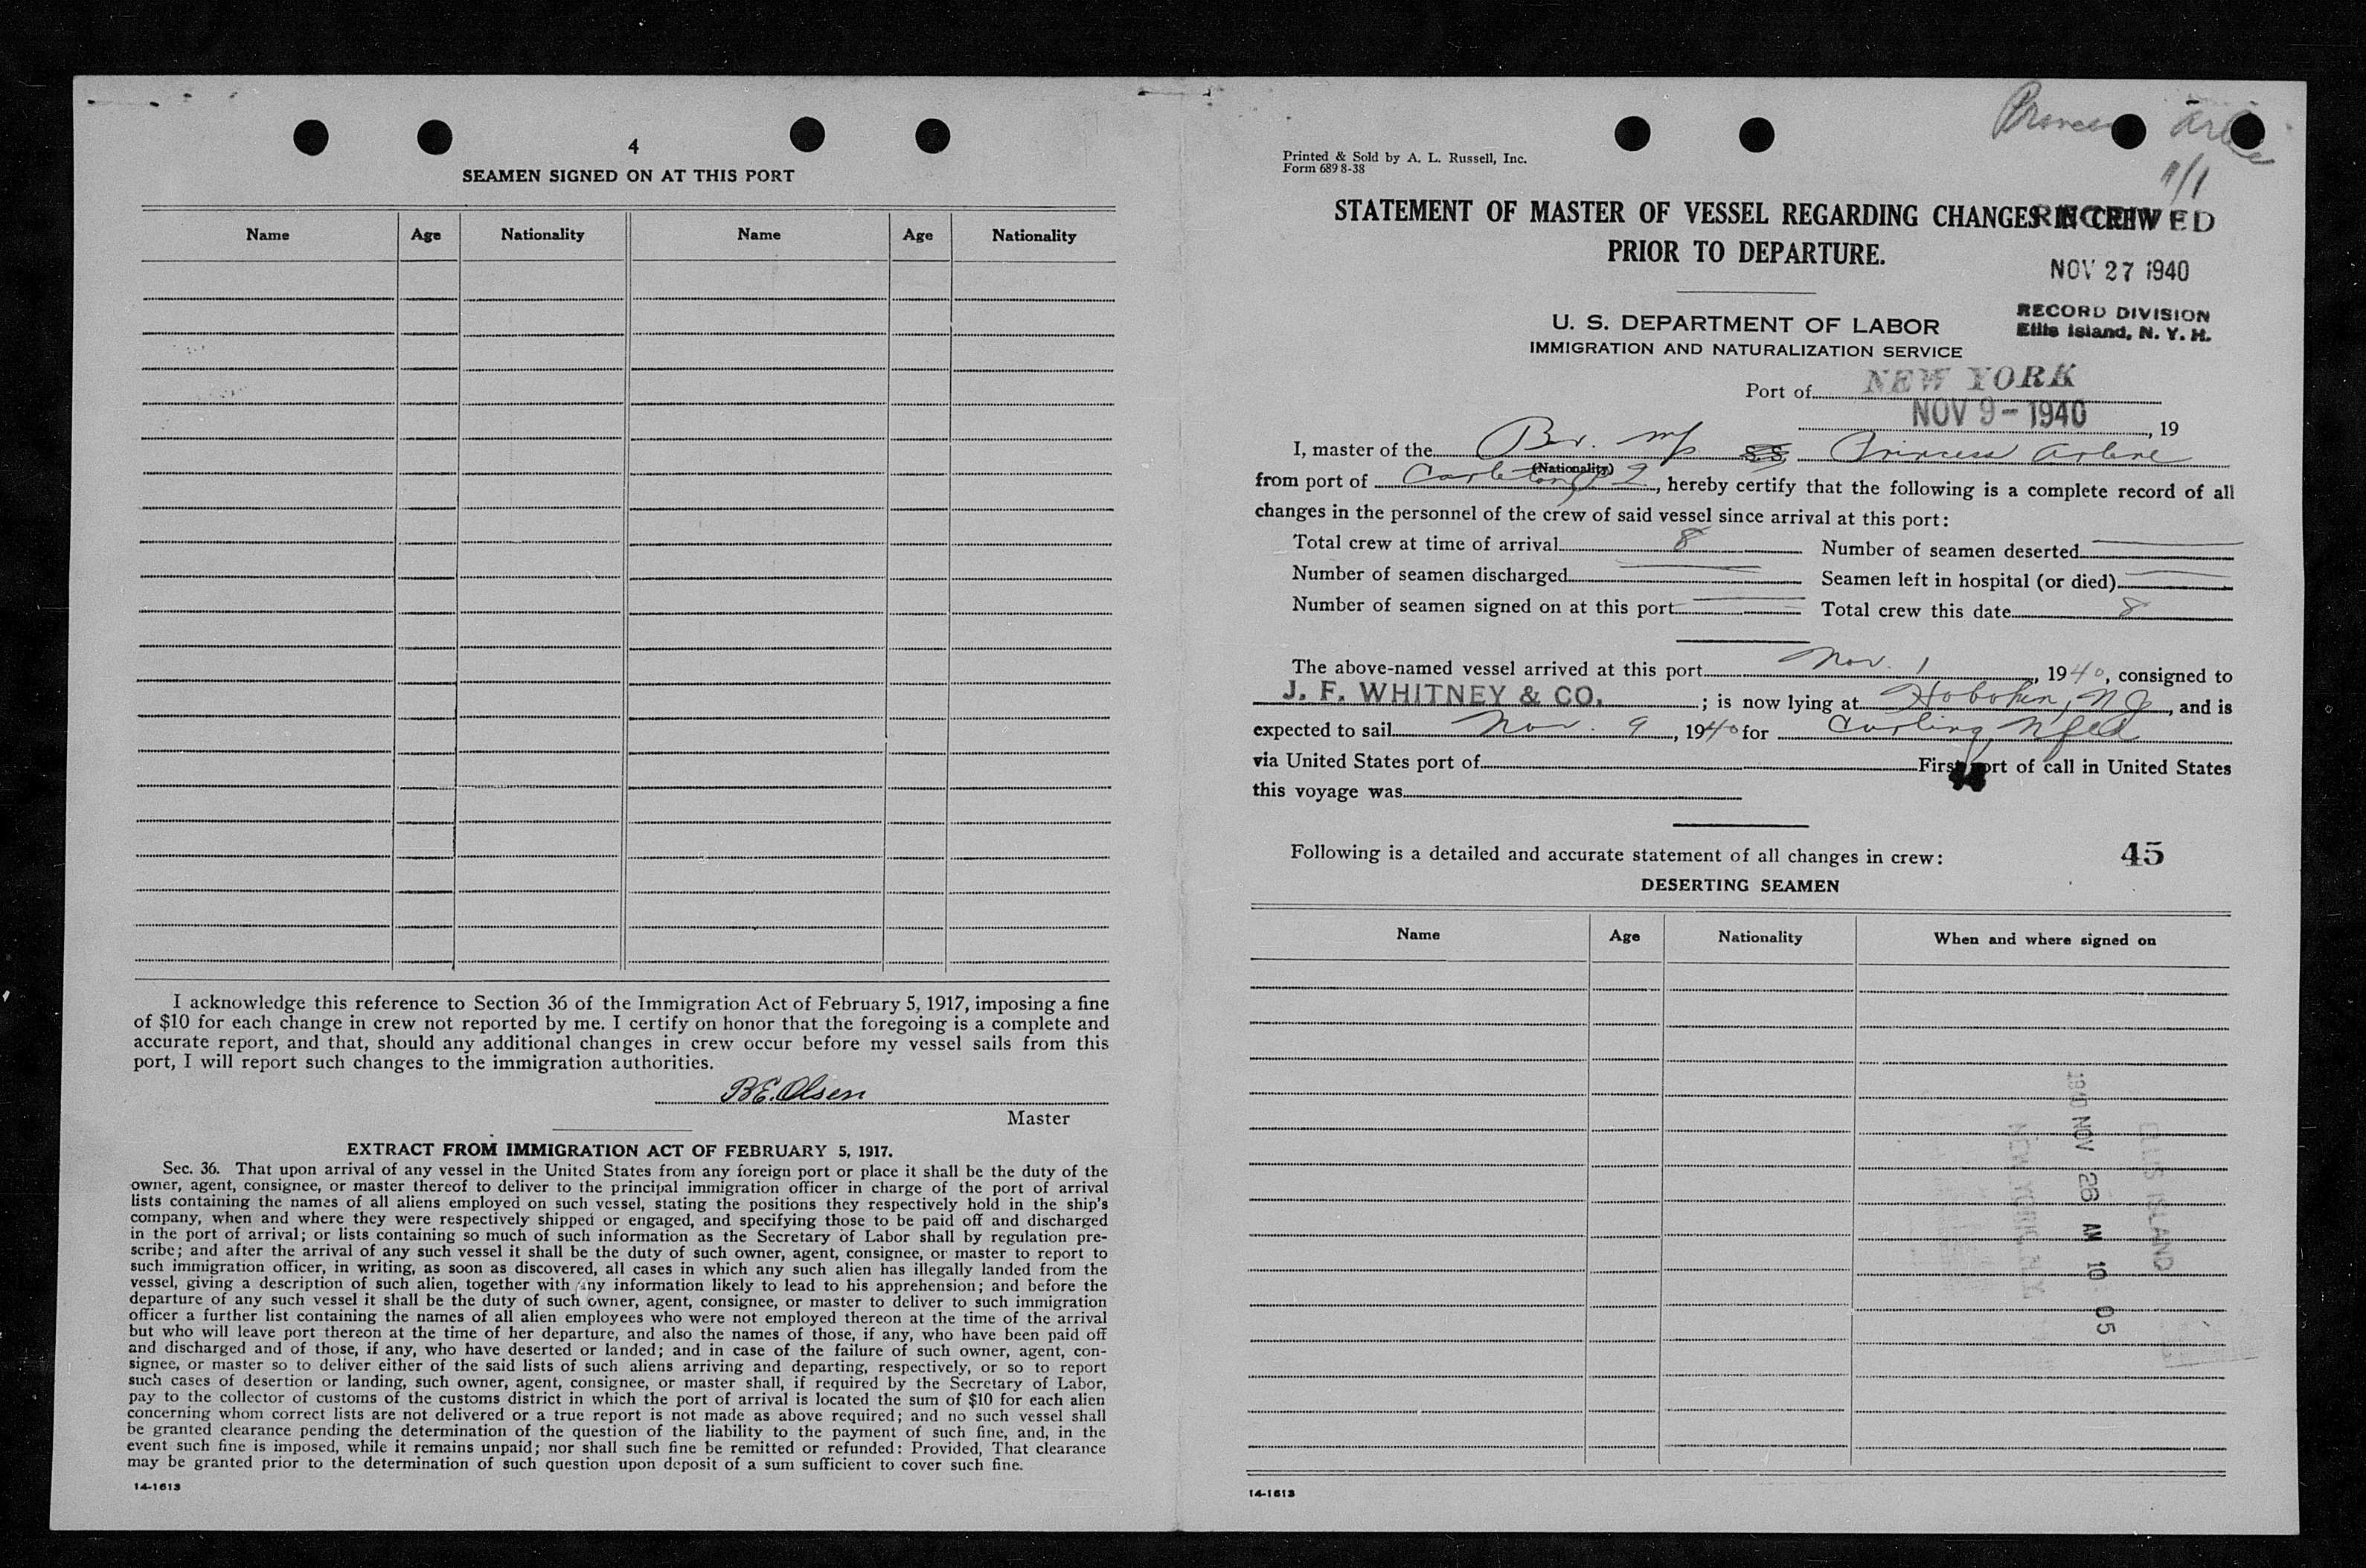 4
SEAMEN SIGNED ON AT THIS PORT
Name Age Nationality Name Age Nationality
I acknowledge this reference to Section 36 of the Immigration Act of February 5, 1917, imposing a fine
of $10 for each change in crew not reported by me. I certify on honor that the foregoing is a complete and
accurate report, and that, should any additional changes in crew occur before my vessel sails from this
port, I will report such changes to the immigration authorities.
B.E. Olsen
Master
EXTRACT FROM IMMIGRATION ACT OF FEBRUARY 5, 1917.
Sec. 36. That upon arrival of any vessel in the United States from any foreign port or place it shall be the duty of the
owner, agent, consignee, or master thereof to deliver to the principal immigration officer in charge of the port of arrival
lists containing the names of all aliens employed on such vessel, stating the positions they respectively hold in the ship's
company, when and where they were respectively shipped or engaged, and specifying those to be paid off and discharged
in the port of arrival; or lists containing so much of such information as the Secretary of Labor shall by regulation pre-
scribe; and after the arrival of any such vessel it shall be the duty of such owner, agent, consignee, or master to report to
such immigration officer, in writing, as soon as discovered, all cases in which any such alien has illegally landed from the
vessel, giving a description of such alien, together with any information likely to lead to his apprehension; and before the
departure of any such vessel it shall be the duty of such owner, agent, consignee, or master to deliver to such immigration
officer a further list containing the names of all alien employees who were not employed thereon at the time of the arrival
but who will leave port thereon at the time of her departure, and also the names of those, if any, who have been paid off
and discharged and of those, if any, who have deserted or landed; and in case of the failure of such owner, agent, con-
signee, or master so to deliver either of the said lists of such aliens arriving and departing, respectively, or so to report
such cases of desertion or landing, such owner, agent, consignee, or master shall, if required by the Secretary of Labor,
pay to the collector of customs of the customs district in which the port of arrival is located the sum of $10 for each alien
concerning whom correct lists are not delivered or a true report is not made as above required; and no such vessel shall
be granted clearance pending the determination of the question of the liability to the payment of such fine, and, in the
event such fine is imposed, while it remains unpaid; nor shall such fine be remitted or refunded: Provided, That clearance
may be granted prior to the determination of such question upon deposit of a sum sufficient to cover such fine.
14-1613
Princess Arlene
11/1
Printed & Sold by A. L. Russell, Inc.
Form 689 8-38
STATEMENT OF MASTER OF VESSEL REGARDING CHANGES IN CREW
PRIOR TO DEPARTURE.
RECEIVED
NOV 27 1940
RECORD DIVISION
Ellis Island, N. Y. H.
U. S. DEPARTMENT OF LABOR
IMMIGRATION AND NATURALIZATION SERVICE
Port of NEW YORK
NOV 9 - 1940, 19
I, master of the Br. M/S SS Princess Arlene
(Nationality)
from port of Carleton, P Q, hereby certify that the following is a complete record of all
changes in the personnel of the crew of said vessel since arrival at this port:
Total crew at time of arrival 8 Number of seamen deserted
Number of seamen discharged Seamen left in hospital (or died)
Number of seamen signed on at this port Total crew this date 8
The above-named vessel arrived at this port Nov. 1, 1940, consigned to
J. F. WHITNEY & CO. ; is now lying at Hoboken, N J, and is
expected to sail Nov. 9, 1940 for Curling, Nfld
via United States port of First port of call in United States
this voyage was
Following is a detailed and accurate statement of all changes in crew: 45
DESERTING SEAMEN
Name Age Nationality When and where signed on
ELLIS ISLAND
NOV 26 AM 10 05
14-1613